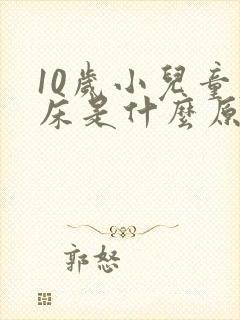 10歲小兒童
床是什麼原
郭怒